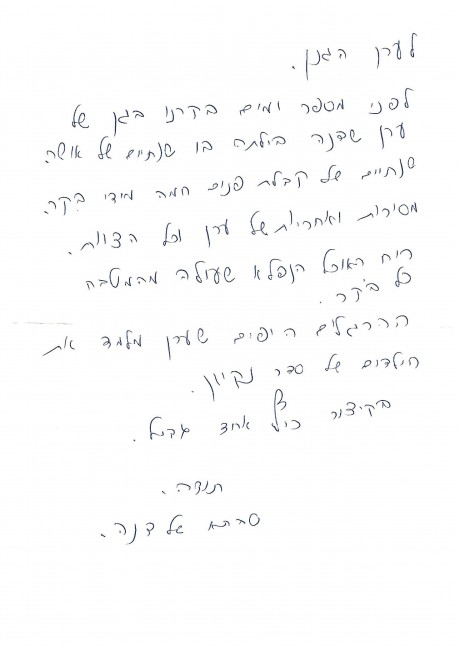 לערן הגנן.
לפני מספר ימים בקרנו בגן של
ערן שדנה בילתה בו שנתיים של אושר.
שנתיים של קבלת פנים חמה מידי בקר.
מסירות ואחריות של ערן וכל הצוות.
ריח האוכל הנפלא שעולה מהמטבח
כל בקר.
ההרגלים היפים שערן מלמד את
הילדים של סדר נקיון.
בקיצור אחד גדול.
תודה.
סבתא של דנה.